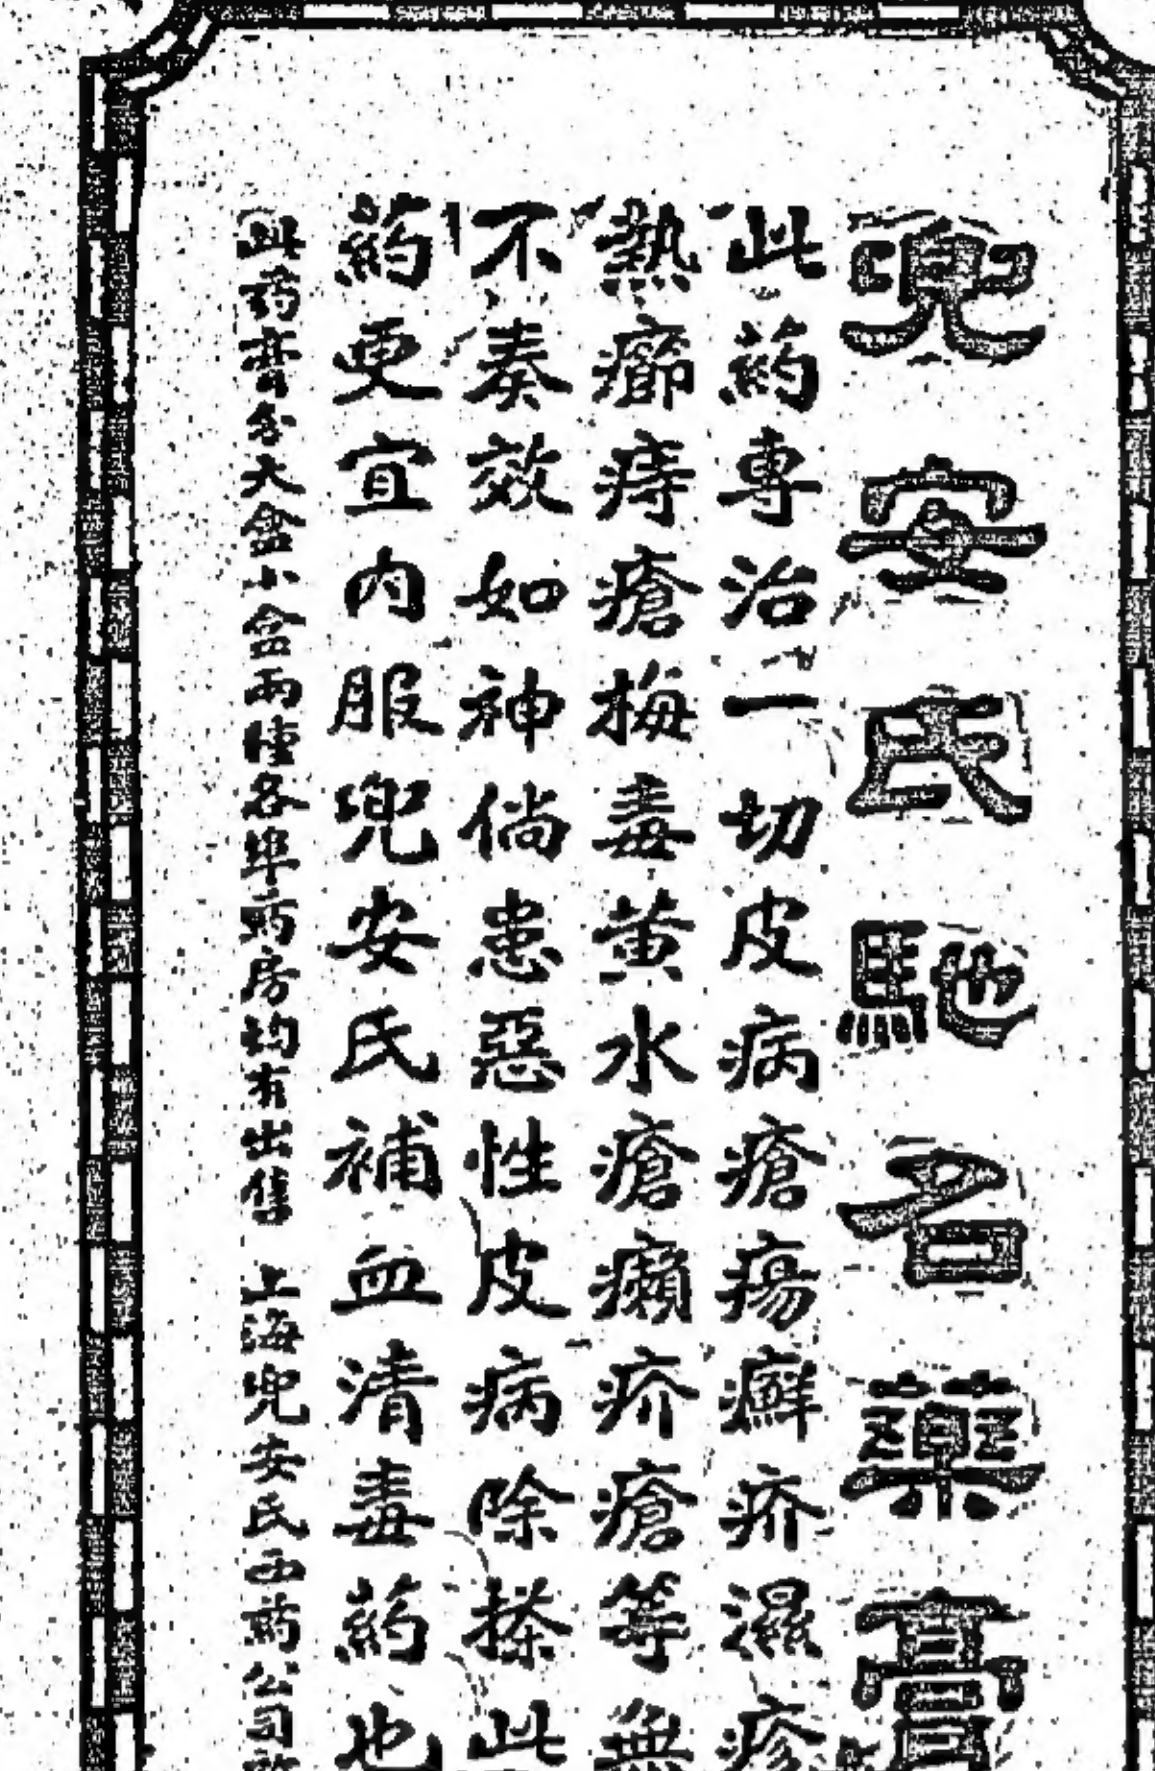 兜安氏馳名藥膏
此葯專治一切皮病瘡瘍癬疥濕疹
熱癤痔瘡梅毒黄水瘡癩疥瘡等無
不奏效如神倘患惡性皮病除搽此
葯更宜内服兜安氏補血清毒葯也
此葯膏分大盒小盒兩種各埠葯房均有出售 上海兜安氏西葯公司